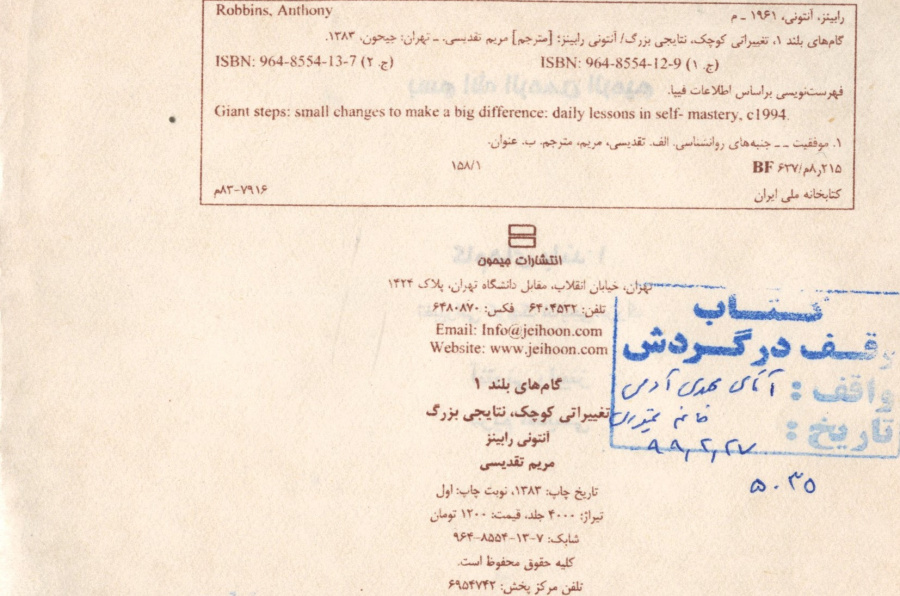 Robbins, Anthony
رابینز، آنتونی، ۱۹۶۱ ـ م
گام‌های بلند ۱، تغییراتی کوچک، نتایجی بزرگ/ آنتونی رابینز؛ [مترجم] مریم تقدیسی. ـ تهران: جیحون، ۱۳۸۳.
ISBN: 964-8554-12-9 (ج. ۱)
ISBN: 964-8554-13-7 (ج. ۲)
فهرست‌نویسی براساس اطلاعات فیپا.
Giant steps: small changes to make a big difference: daily lessons in self- mastery, c1994.
۱. موفقیت ـ ـ جنبه‌های روانشناسی. الف. تقدیسی، مریم، مترجم. ب. عنوان.
۲۱۵ر۸م/۶۳۷ BF
۱۵۸/۱
کتابخانه ملی ایران
۸۳-۷۹۱۶م
انتشارات جیحون
تهران، خیابان انقلاب، مقابل دانشگاه تهران، پلاک ۱۴۲۴
تلفن: ۶۴۰۴۵۳۲ فکس: ۶۴۸۰۸۷۰
Email: Info@jeihoon.com
Website: www.jeihoon.com
گام‌های بلند ۱
تغییراتی کوچک، نتایجی بزرگ
آنتونی رابینز
مریم تقدیسی
تاریخ چاپ: ۱۳۸۳، نوبت چاپ: اول
تیراژ: ۴۰۰۰ جلد، قیمت: ۱۲۰۰ تومان
شابک: ۷-۱۳-۸۵۵۴-۹۶۴
کلیه حقوق محفوظ است.
تلفن مرکز پخش: ۶۹۵۴۷۴۲
کتاب
وقف در گردش
واقف: آقای مهدی آدمی
خانم
تاریخ:
۹۹٫۲٫۲۷
۵۰۳۵